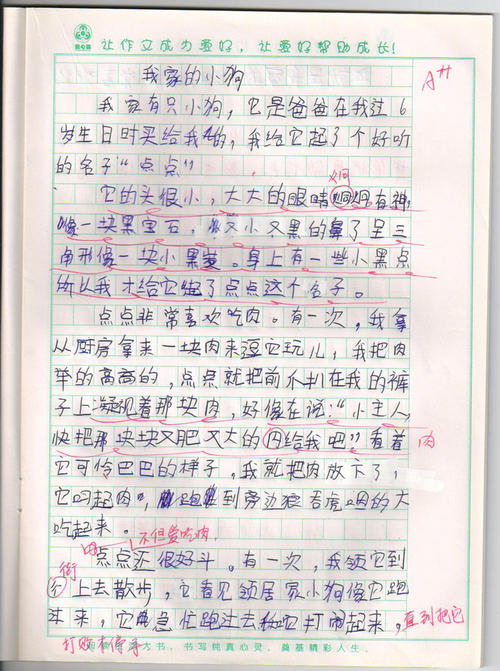 让作文成为爱好，让爱好帮助成长！
A++
我家的小狗
我家有只小狗，它是爸爸在我过6
岁生日时买给我的，我给它起了个好听
的名子“点点”
它的头很小，大大的眼睛炯炯有神，
像一块黑宝石，又小又黑的鼻子呈三
角形像一块小黑炭。身上有一些小黑点
所以我才给它起了点点这个名子。
点点非常喜欢吃肉。有一次，我拿
从厨房拿来一块肉来逗它玩儿，我把肉
举的高高的，点点就把前爪扒在我的裤
子上凝视着那块肉，好像在说：“小主人，
快把那块块又肥又大的肉给我吧”看着
肉
它可怜巴巴的样子，我就把肉放下了，
它叼起肉，跑到旁边狼吞虎咽的大
吃起来。
不但爱吃肉
点点还很好斗。有一次，我领它到
街
上去散步，它看见领居家小狗像它跑
过来，它急忙跑过去和它打闹起来，直到把它
打败才停手
大书，书写纯真心灵，奠基精彩人生。